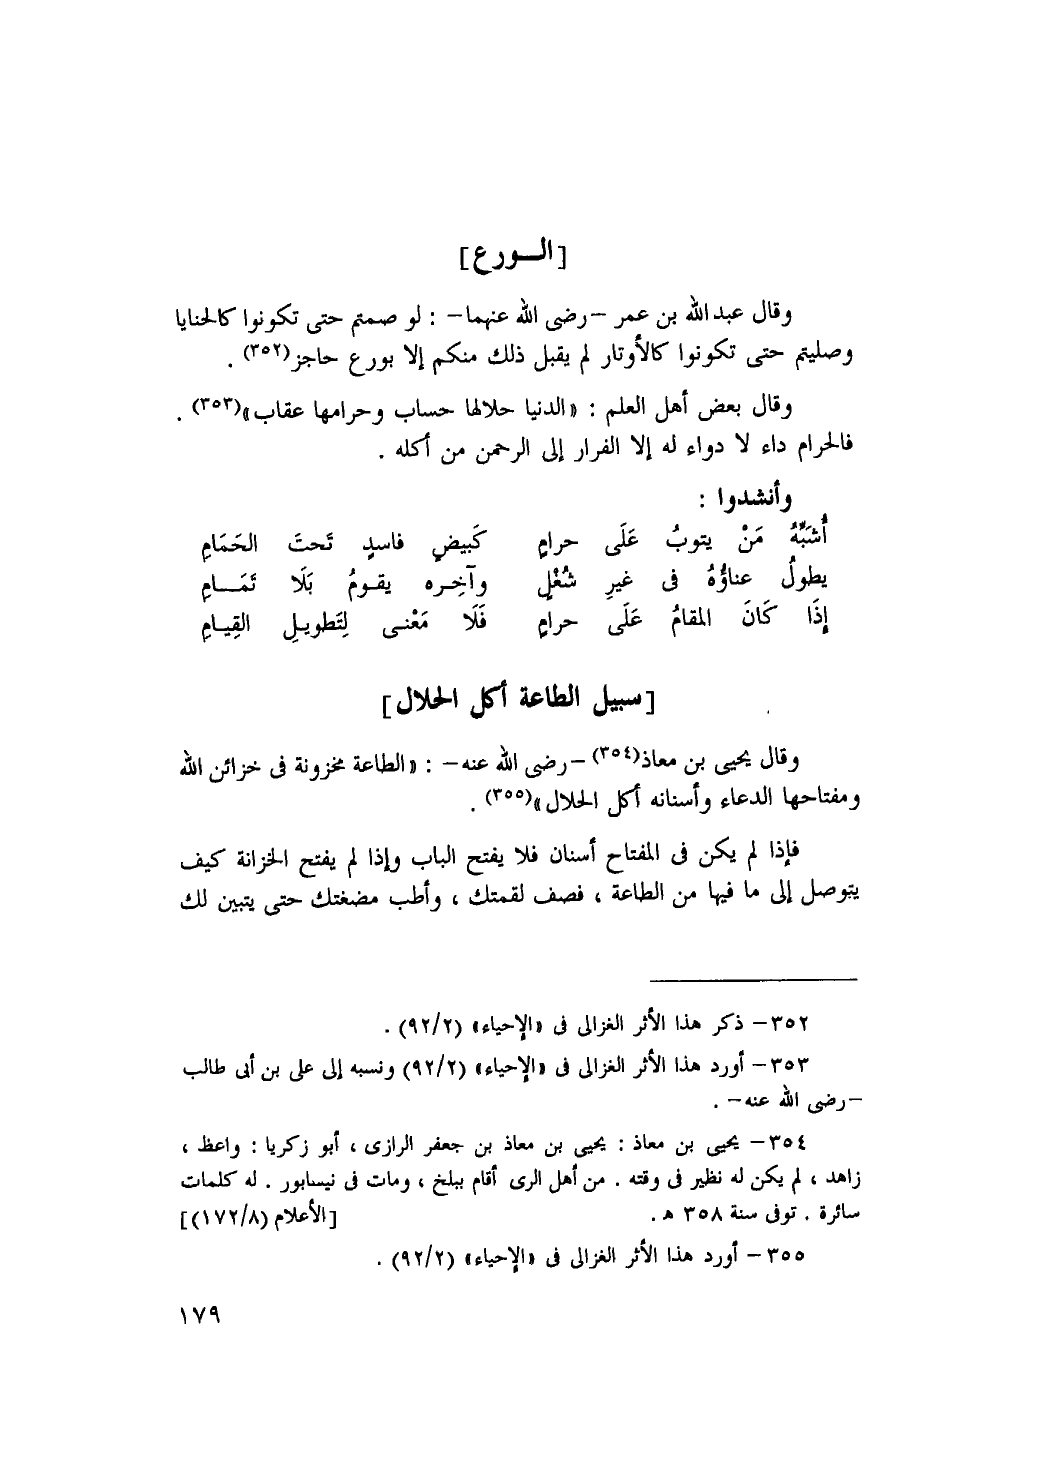 [الـورع]
وقال عبد الله بن عمر –رضى الله عنهما– : لو صمتم حتى تكونوا كالحنايا
وصليتم حتى تكونوا كالأوتار لم يقبل ذلك منكم إلا بورع حاجز(٣٥٢) .
وقال بعض أهل العلم : «الدنيا حلالها حساب وحرامها عقاب»(٣٥٣) .
فالحرام داء لا دواء له إلا الفرار إلى الرحمن من أكله .
وأنشدوا :
أُشَبِّهُ مَنْ يتوبُ عَلَى حرامٍ كَبيضٍ فاسدٍ تَحتَ الحَمَامِ
يطولُ عناؤُهُ فى غيرِ شُغْلٍ وآخِـره يقـومُ بَلَا تَمَـــامِ
إِذَا كَانَ المقامُ عَلَى حرامٍ فَلَا مَعْنـى لِتَطويـلِ القِيـامِ
[سبيل الطاعة أكل الحلال]
وقال يحيى بن معاذ(٣٥٤) –رضى الله عنه– : «الطاعة مخزونة فى خزائن الله
ومفتاحها الدعاء وأسنانه أكل الحلال»(٣٥٥) .
فإذا لم يكن فى المفتاح أسنان فلا يفتح الباب وإذا لم يفتح الخزانة كيف
يتوصل إلى ما فيها من الطاعة ، فصف لقمتك ، وأطب مضغتك حتى يتبين لك
٣٥٢– ذكر هذا الأثر الغزالى فى «الإحياء» (٩٢/٢) .
٣٥٣– أورد هذا الأثر الغزالى فى «الإحياء» (٩٢/٢) ونسبه إلى على بن أبى طالب
–رضى الله عنه– .
٣٥٤– يحيى بن معاذ : يحيى بن معاذ بن جعفر الرازى ، أبو زكريا : واعظ ،
زاهد ، لم يكن له نظير فى وقته . من أهل الرى أقام ببلخ ، ومات فى نيسابور . له كلمات
سائرة . توفى سنة ٣٥٨ هـ . [الأعلام (١٧٢/٨)]
٣٥٥– أورد هذا الأثر الغزالى فى «الإحياء» (٩٢/٢) .
١٧٩